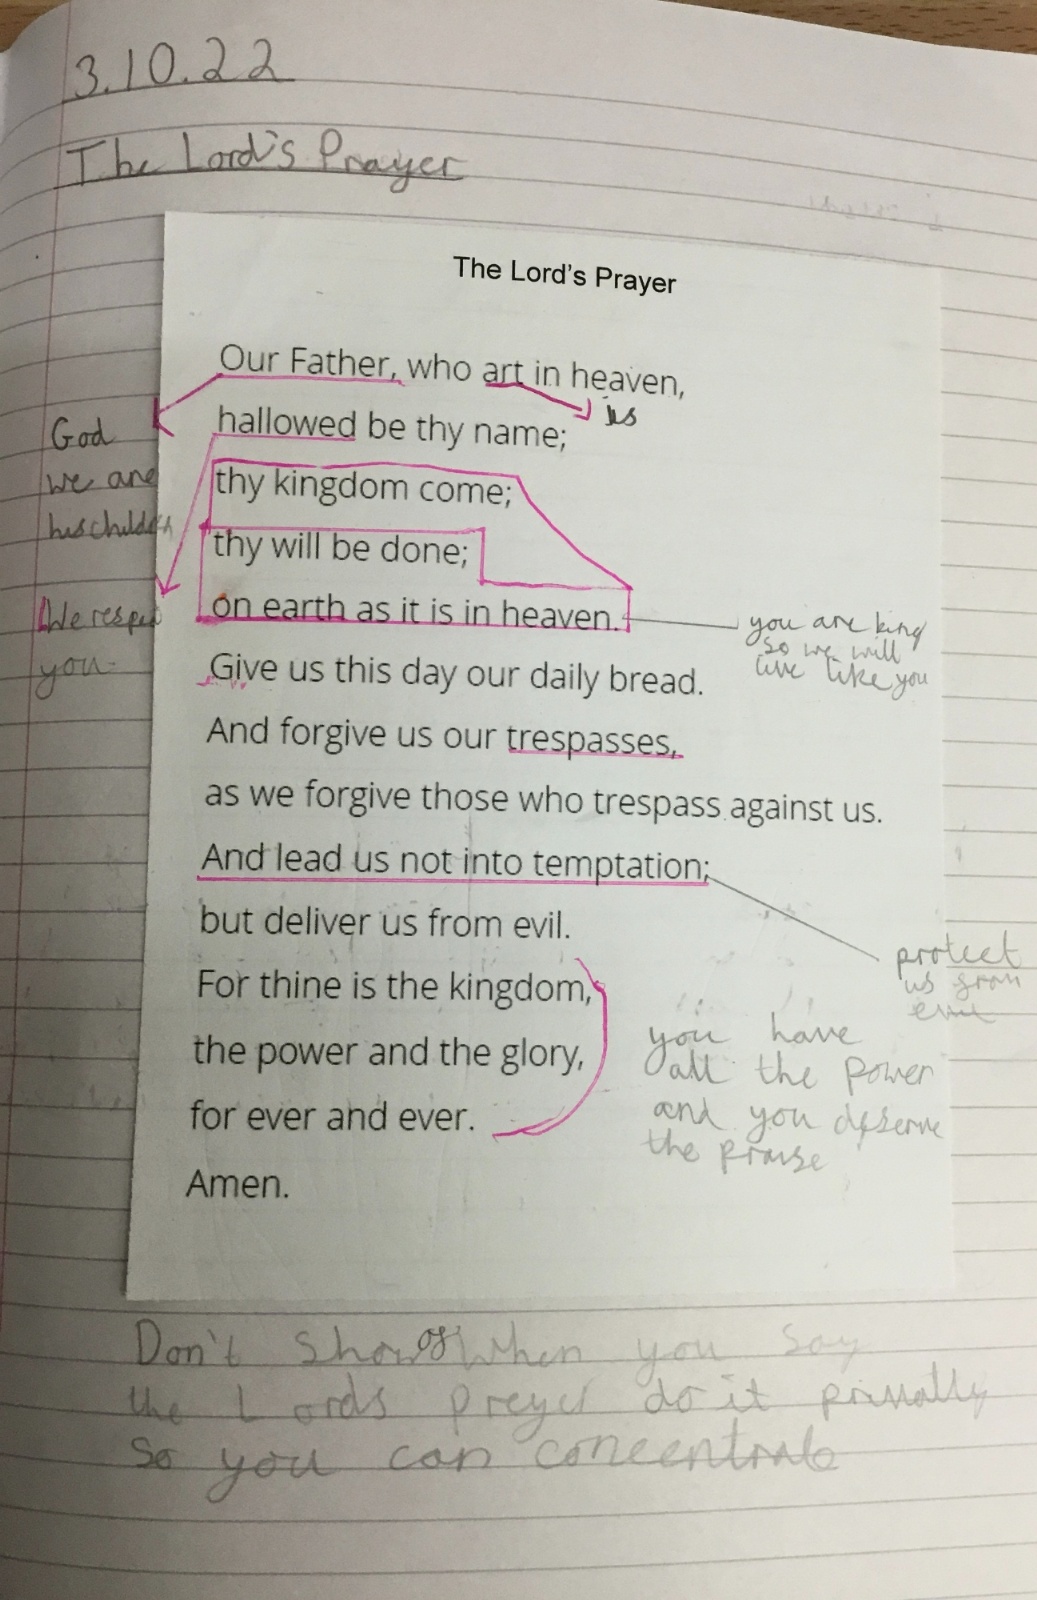 3.10.22
The Lord's Prayer
The Lord's Prayer
Our Father, who art in heaven,
is
hallowed be thy name;
God
we are
his children
thy kingdom come;
thy will be done;
on earth as it is in heaven.
We respect
you
you are king
so we will
live like you
Give us this day our daily bread.
And forgive us our trespasses,
as we forgive those who trespass against us.
And lead us not into temptation;
but deliver us from evil.
protect
us from
evil
For thine is the kingdom,
the power and the glory,
for ever and ever.
you have
all the power
and you deserve
the praise
Amen.
Don't show of when you say
the Lords preyer do it privately
so you can concentrate